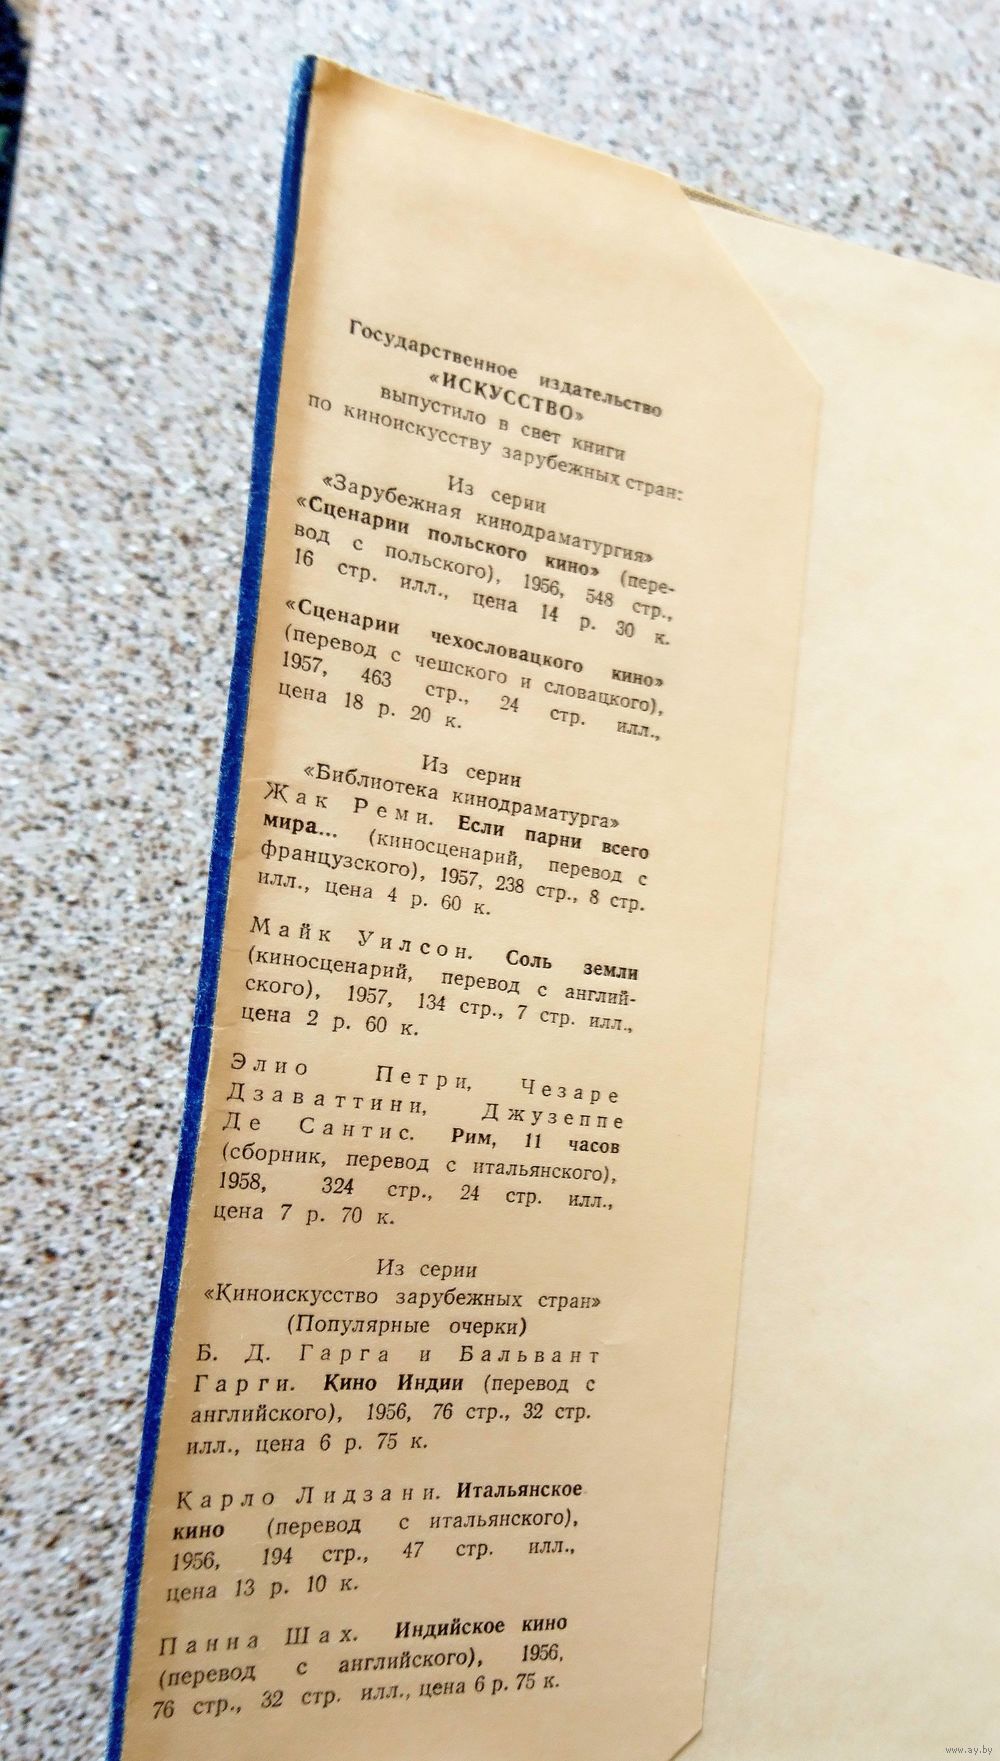 Государственное издательство
«ИСКУССТВО»
выпустило в свет книги
по киноискусству зарубежных стран:
Из серии
«Зарубежная кинодраматургия»
«Сценарии польского кино» (пере-
вод с польского), 1956, 548 стр.,
16 стр. илл., цена 14 р. 30 к.
«Сценарии чехословацкого кино»
(перевод с чешского и словацкого),
1957, 463 стр., 24 стр. илл.,
цена 18 р. 20 к.
Из серии
«Библиотека кинодраматурга»
Жак Реми. Если парни всего
мира... (киносценарий, перевод с
французского), 1957, 238 стр., 8 стр.
илл., цена 4 р. 60 к.
Майк Уилсон. Соль земли
(киносценарий, перевод с англий-
ского), 1957, 134 стр., 7 стр. илл.,
цена 2 р. 60 к.
Элио Петри, Чезаре
Дзаваттини, Джузеппе
Де Сантис. Рим, 11 часов
(сборник, перевод с итальянского),
1958, 324 стр., 24 стр. илл.,
цена 7 р. 70 к.
Из серии
«Киноискусство зарубежных стран»
(Популярные очерки)
Б. Д. Гарга и Бальвант
Гарги. Кино Индии (перевод с
английского), 1956, 76 стр., 32 стр.
илл., цена 6 р. 75 к.
Карло Лидзани. Итальянское
кино (перевод с итальянского),
1956, 194 стр., 47 стр. илл.,
цена 13 р. 10 к.
Панна Шах. Индийское кино
(перевод с английского), 1956,
76 стр., 32 стр. илл., цена 6 р. 75 к.
www.ay.by